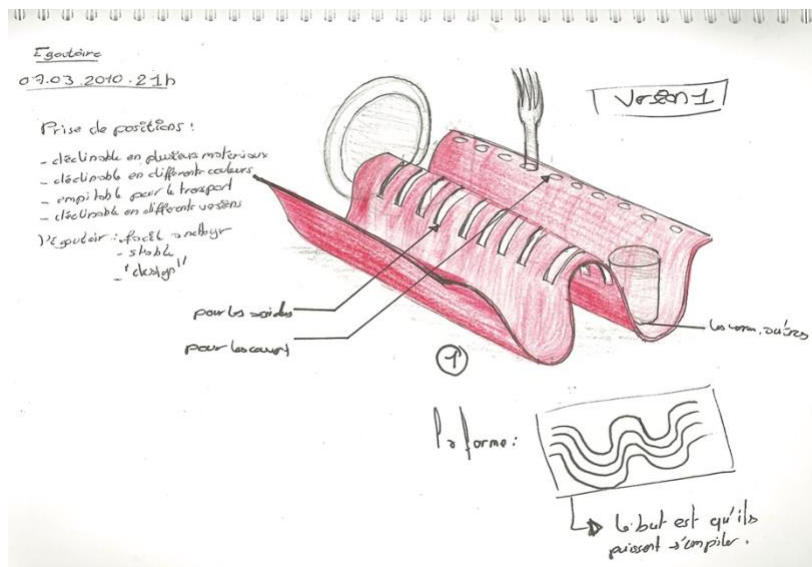 Egoutoire
07.03.2010.21h
Version 1
Prise de positions :
- déclinable en plusieurs materiaux
- déclinable en different couleurs
- empilable pour le transport
- déclinable en different versions
l'egoutoir : facil a netoyr
- stable
- "design"
pour les
pour les couvert
les verres, autres
1
la forme :
le but est qu'ils
puissent s'empiler.